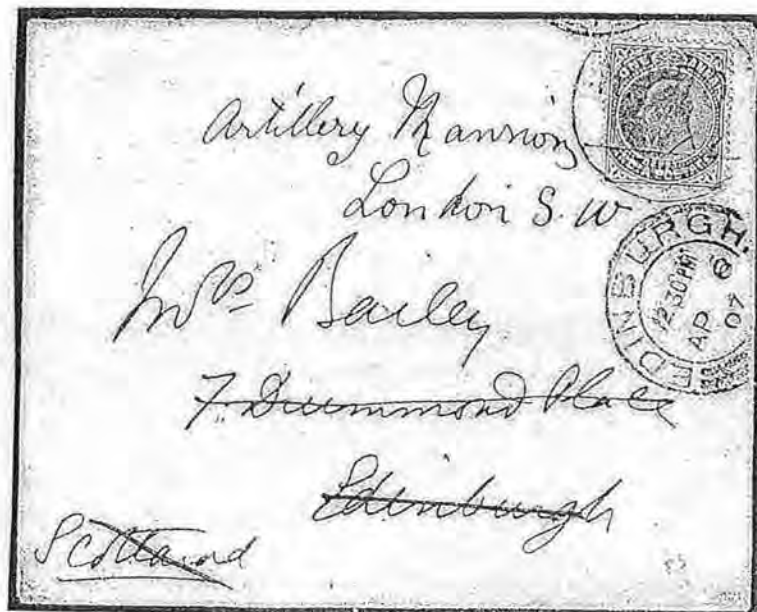 Artillery Mansions
London S.W
Mrs Bailey
7. Drummond Place
Edinburgh
Scotland
EDINBURGH.
12 30 PM
AP
07